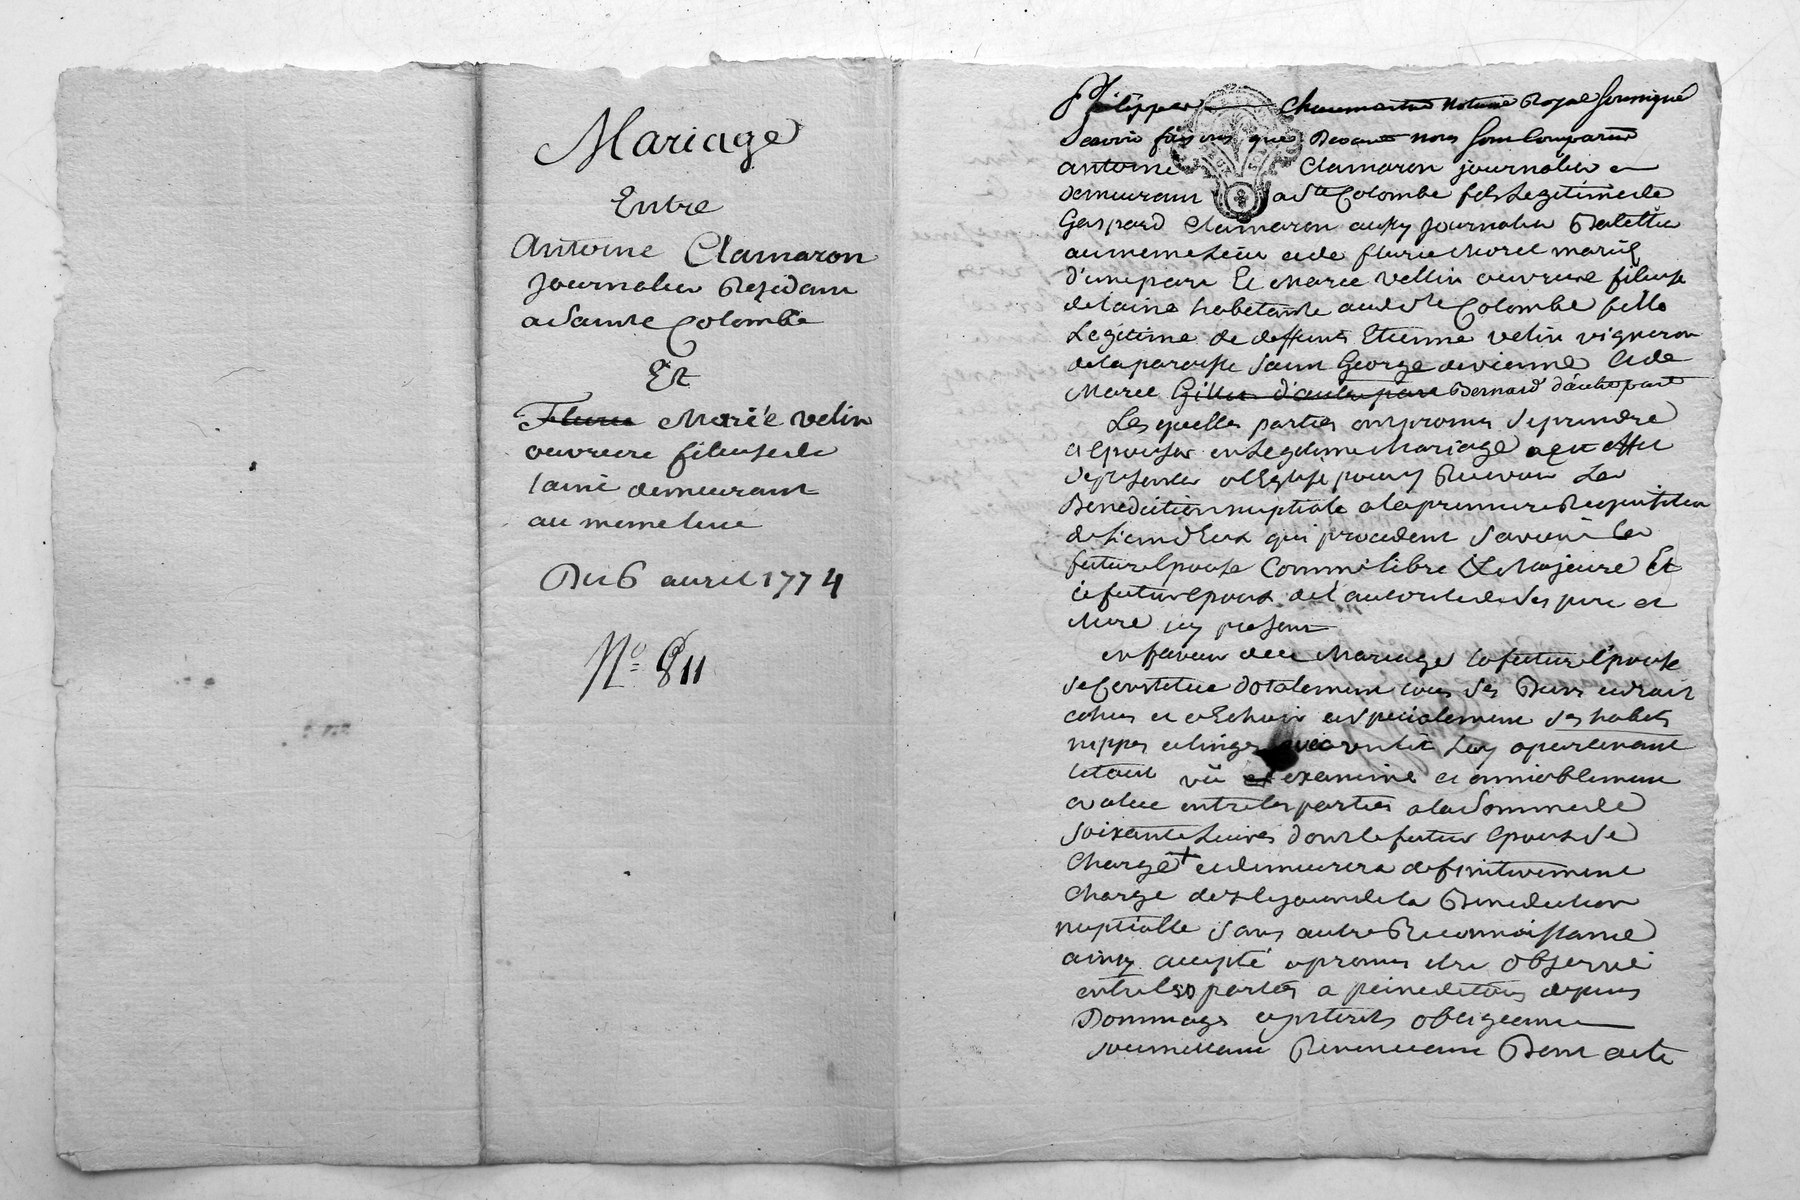 Mariage
Entre
Antoine Clamaron
Journalier Residant
a Sainte Colombe
Et
Fleurie Marie velin
ouvriere fileuse de
laine demeurant
au meme lieu
Du 6 avril 1774
N° 811
Philippe Chaumartin Notaire Royal Soussigné
Scavoir faisons que Devant nous Sont Comparus
antoine Clamaron journalier
demeurant a Ste Colombe fils Legitime de
Gaspard Clamaron aussy Journalier
au meme Lieu et de fleurie Morel mariés
d'une part Et Marie Vellin ouvriere fileuse
de laine habitante audt Ste Colombe fille
Legitime de deffunt Etienne velin vigneron
de la paroisse Saint George de vienne et de
Marie Gillier d'autre part Bernard d'autre part
Lesquelles parties ont promis Se prendre
et Epouser en Legitime Mariage a cet effet
Se presenter a l'Eglise pour y Recevoir La
Benediction nuptiale a la premiere Requisition
de l'un d'Eux qui procedent Scavoir la
future Epouse Comme libre & Majeure Et
le futur Epoux de l'autorité de Ses pere et
Mere icy present
en faveur de ce Mariage la future Epouse
Se Constitue dotalement tous Ses Biens et droits
echus et a Echoir et specialement Ses habits
nippes et linges avec un lit Luy apartenant
le tout vû et examiné et amiablement
evalué entre les parties a la Somme de
Soixante Livres dont le futur Epoux Se
Charge + et demeurera definitivement
Chargé dez le jour de la Benediction
nuptialle Sans autre Reconnoissance
ainsy accepté a promis etre observé
entre les parties a peine de tous depens
Dommages interets obligeant
Soumettant Renonceant Dont acte